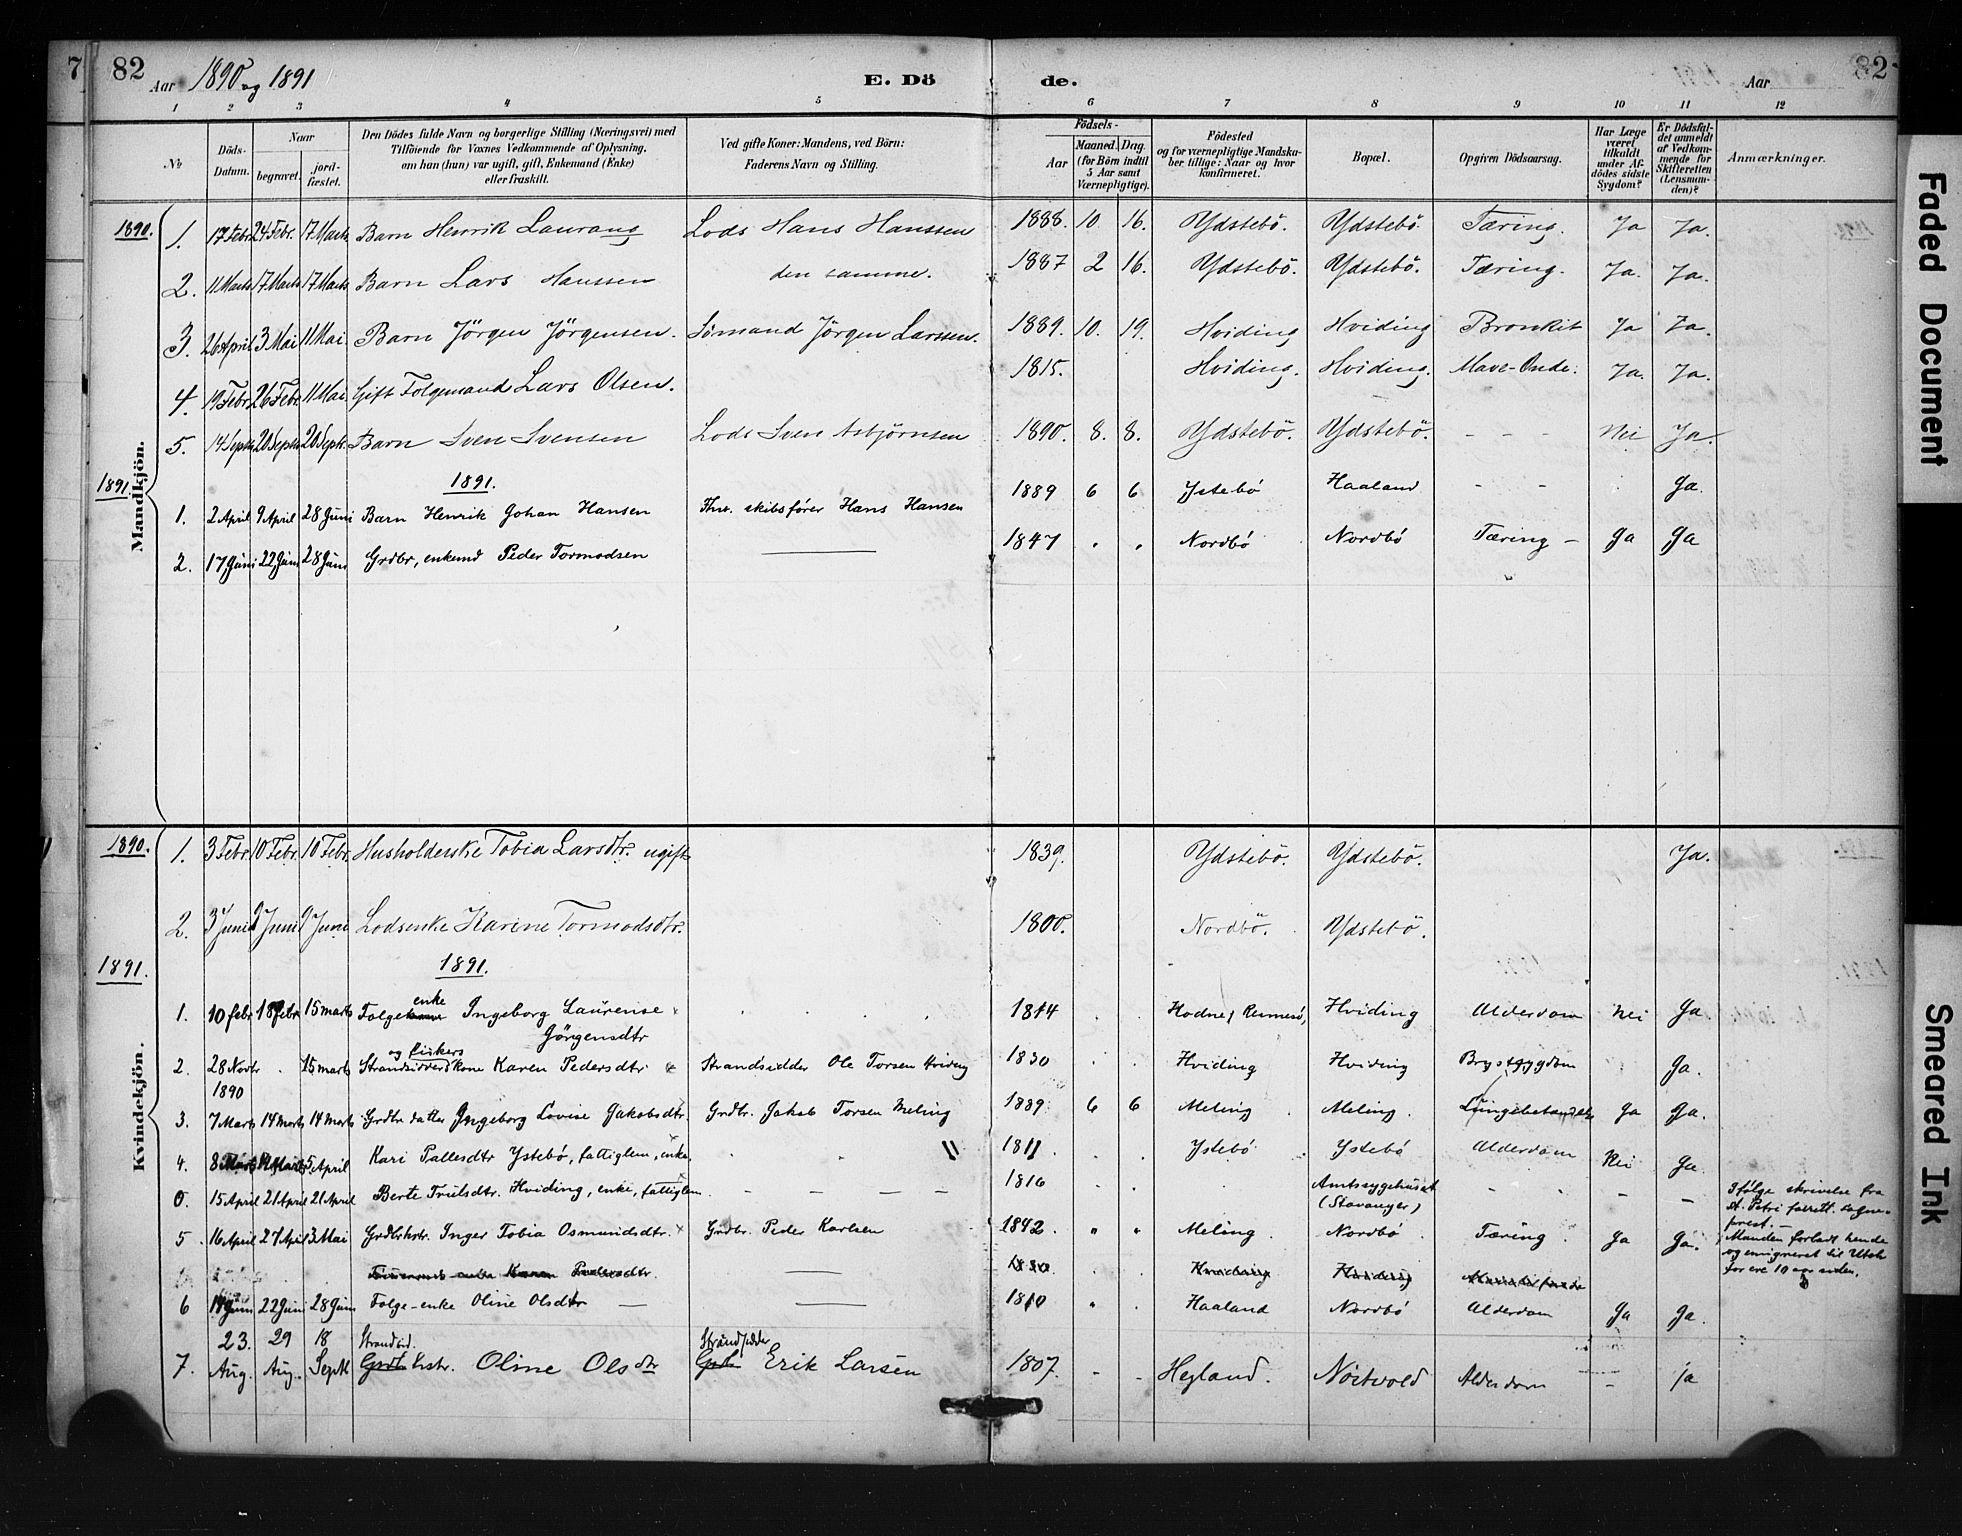 7 82 Aar 1890 og 1891 E. Dö de. Aar 82
1 2 3 4 5 6 7 8 9 10 11 12
No
Döds-Datum.
Naar begravet. jord-fæstet.
Den Dödes fulde Navn og borgerlige Stilling (Næringsvei) med Tilföiende for Voxnes Vedkommende af Oplysning, om han (hun) var ugift, gift, Enkemand (Enke) eller fraskilt.
Ved gifte Koner: Mandens, ved Börn: Faderens Navn og Stilling.
Födsels- Aar Maaned. Dag. (for Börn indtil 5 Aar samt Værnepligtige).
Födested og for værnepligtige Mandskaber tillige: Naar og hvor konfirmeret.
Bopæl.
Opgiven Dödsaarsag.
Har Læge været tilkaldt under Afdödes sidste Sygdom?
Er Dödsfaldet anmeldt af Vedkommende for Skifteretten (Lensmanden)?
Anmærkninger.
Mandkjön.
1890. 1. 17 Febr. 24 Febr. 17 Marts Barn Henrik Laurang Lods Hans Hanssen 1888. 10 16. Ydstebö. Ydstebö. Tæring. Ja Ja.
2. 11 Marts 17 Marts 17 Marts Barn Lars Hanssen den samme. 1887 2 16. Ydstebö. Ydstebö. Tæring. Ja. Ja.
3. 26 April 3 Mai 11 Mai. Barn Jörgen Jörgensen. Sömand Jörgen Larssen. 1889. 10. 19. Hviding Hviding Bronkit Ja Ja.
4. 19 Febr 26 Febr. 11 Mai Gift Folgemand Lars Olsen. 1815. Hviding. Hviding. Mave-Onde. Ja. Ja.
5. 14 Septr 20 Septr 20 Septr. Barn Sven Svensen Lods Sven Asbjörnsen 1890. 8. 8. Ydstebö. Ydstebö. - - - Nei Ja.
1891. 1891.
1. 2 April 9 April 28 Juni Barn Henrik Johan Hansen Fhv. skibsfører Hans Hansen 1889 6 6 Ystebø Haaland - - Ja.
2. 17 Juni 22 Juni 28 Juni Grdbr, enkemd Peder Tormodsen 1847 Nordbø Nordbø Tæring - Ja Ja
Kvindekjön.
1890. 1. 3 Febr. 10 Febr. 10 Febr. Husholderske Tobia Larsdtr. ugift 1839. Ydstebö. Ydstebö. Ja.
2. 3 Juni 9 Juni 9 Juni Lodsenke Karine Tormodsdtr. 1800. Nordbö. Ydstebö.
1891. 1891.
1. 10 febr 18 febr. 15 marts Folge enke Ingeborg Laurense 1814 Hodne, Rennesö, Hviding Alderdom Nei Ja.
Jörgensdtr
og fiskers
2. 28 Novbr 15 marts Strandsidderskone Karen Pedersdtr Strandsidder Ole Torsen Hviding 1830 Hviding Hviding Brystsygdom Ja.
1890
3. 7 Marts 14 marts 14 marts Grdbr datter Ingeborg Lovise Jakobsdtr. Grdbr. Jakob Torsen Meling 1889. 6 6 Meling Meling. Lungebetændelse Ja Ja.
4. 8 Marts 14 Marts 5 April Kari Pallesdtr Ystebø, fattiglem, enke. 1811 Ystebø Ystebø Alderdom Nei Ja.
0. 15 April 21 April 21 April Berte Trulsdtr. Hviding, enke, fattiglem. - - - - 1816 Amtssygehuset - - - - Ifølge skrivelse fra
(Stavanger) St. Petri sogne-
prest. -
5. 16 April 27 April 3 Mai Grdbrkstr. Inger Tobia Osmundsdtr. Grdbr. Peder Karlsen 1842. Meling. Nordbø Tæring. Ja Ja. Manden forladt hende
og emigreret til Utah
for ere 10 aar siden.
enke Karen Pedersdtr. 1830 Hviding Hviding
6 14 Juni 22 Juni 28 Juni Folge-enke Oline Olsdtr 1810 Haaland Nordbø Alderdom Ja Ja.
7. 23. Aug. 29 Aug. 18 Septb Strandsid. Grdb kstr. Oline Olsdtr Strandsidder Erik Larsen 1807. - - Hegland. Alderdom - ja
Faded Document
Smeared Ink